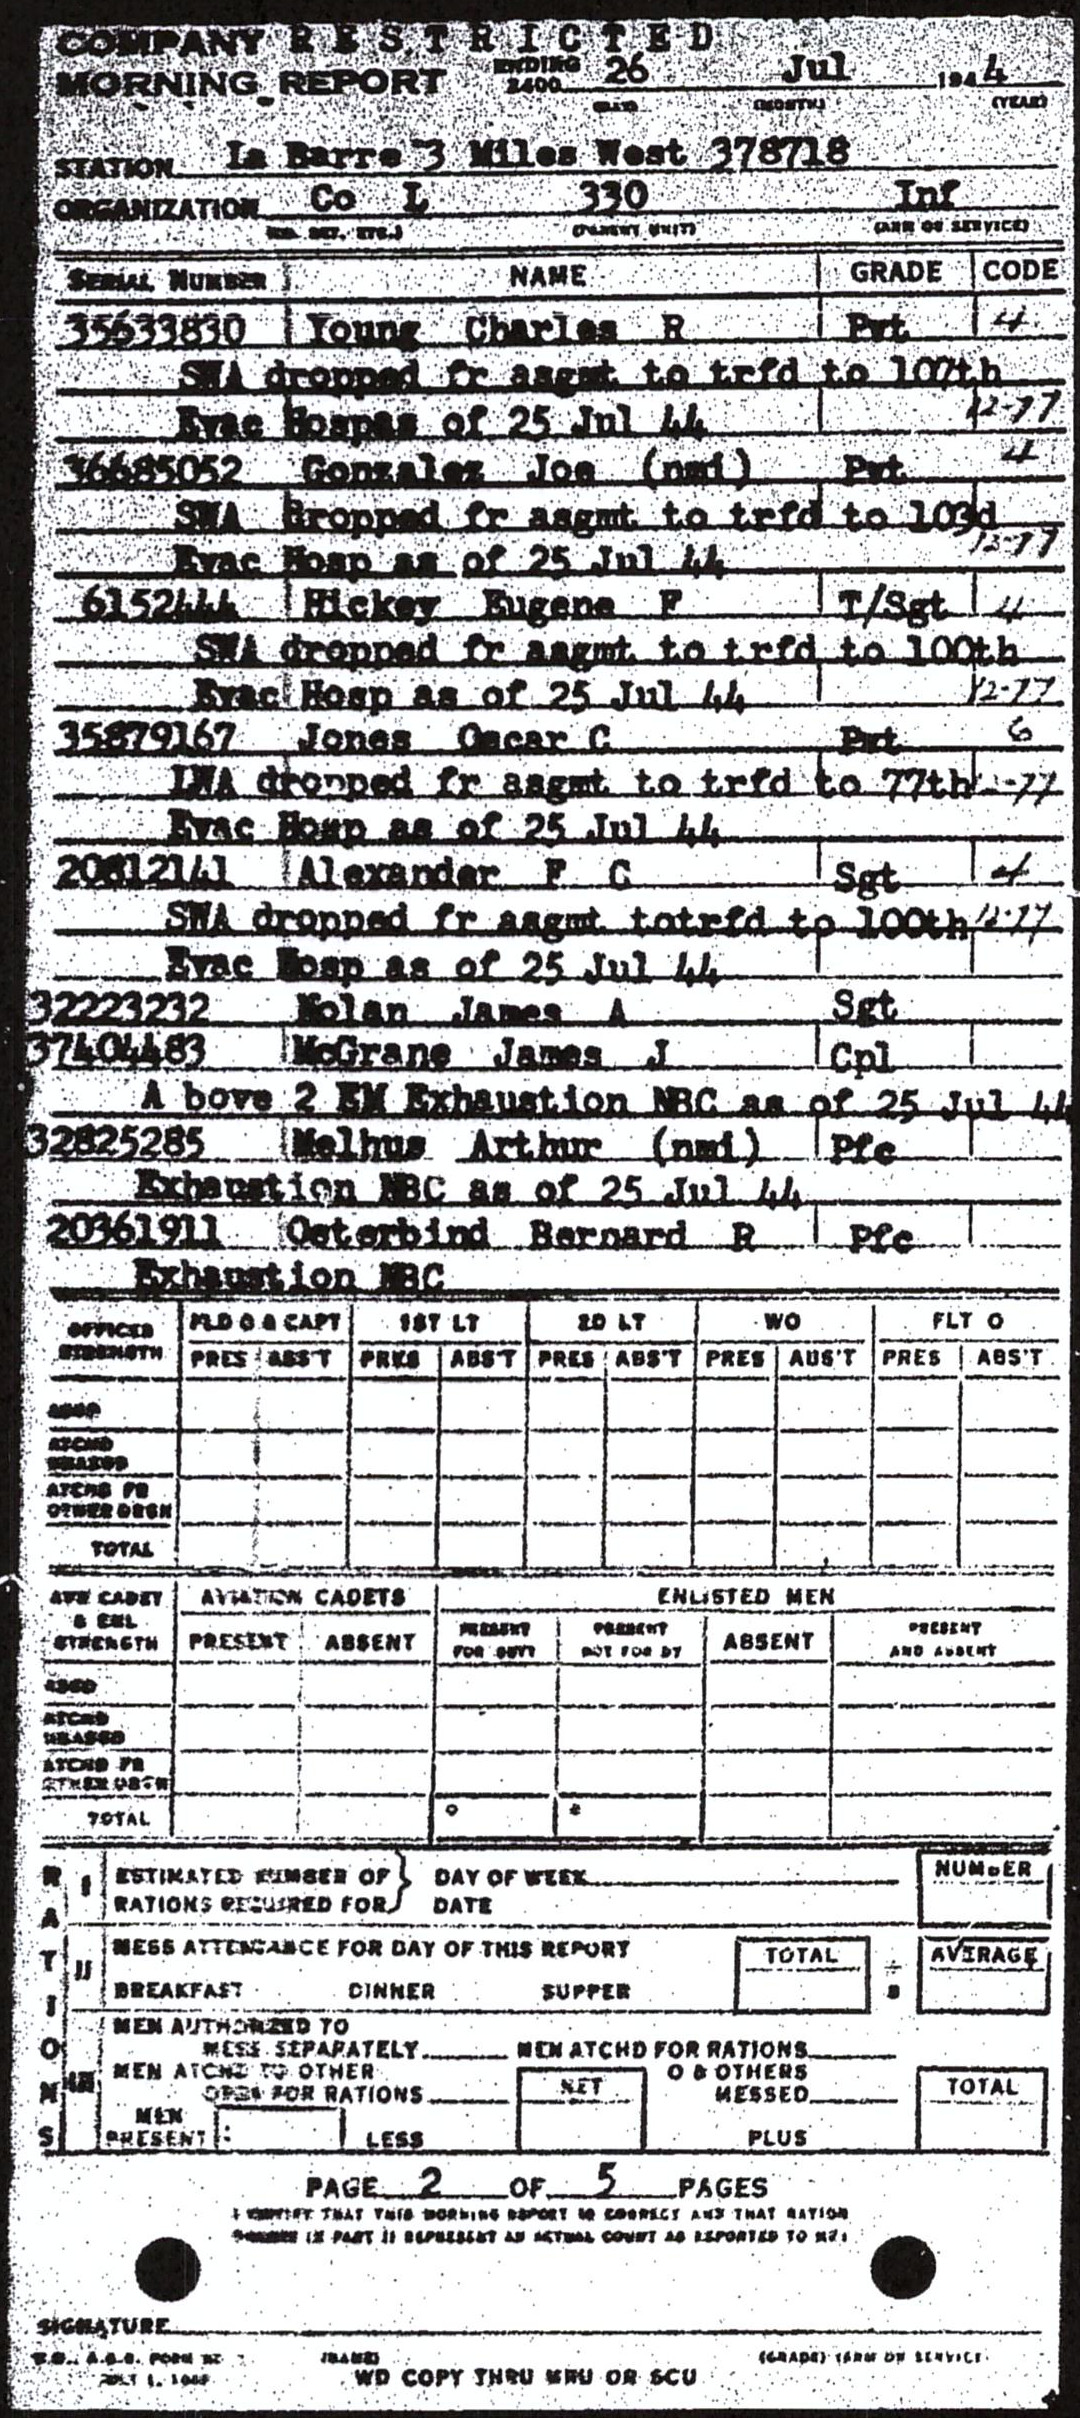 COMPANY RESTRICTED
MORNING REPORT ENDING 2400 26 Jul 1944
(DAY) (MONTH) (YEAR)
STATION La Barre 3 Miles West 378718
ORGANIZATION Co L 330 Inf
(CO. DET. ETC.) (PARENT UNIT) (ARM OR SERVICE)
SERIAL NUMBER NAME GRADE CODE
35633830 Young Charles R Pvt 4
SWA dropped fr asgmt to trfd to 107th
Evac Hospas of 25 Jul 44 12-77
36685052 Gonzalez Joe (nmi) Pvt 4
SWA dropped fr asgmt to trfd to 103d
Evac Hosp as of 25 Jul 44 12-77
6152444 Hickey Eugene F T/Sgt 4
SWA dropped fr asgmt to trfd to 100th
Evac Hosp as of 25 Jul 44 12-77
35879167 Jones Oscar C Pvt 6
LWA dropped fr asgmt to trfd to 77th 12-77
Evac Hosp as of 25 Jul 44
20812141 Alexander F C Sgt 4
SWA dropped fr asgmt totrfd to 100th 12-77
Evac Hosp as of 25 Jul 44
32223232 Nolan James A Sgt
37404483 McGrane James J Cpl
A bove 2 EM Exhaustion NBC as of 25 Jul 44
32825285 Melhus Arthur (nmi) Pfc
Exhaustion NBC as of 25 Jul 44
20361911 Osterbind Bernard R Pfc
Exhaustion NBC
OFFICER STRENGTH FLD O & CAPT 1ST LT 2D LT WO FLT O
PRES ABS'T PRES ABS'T PRES ABS'T PRES ABS'T PRES ABS'T
ASGD
ATCHD UNASGD
ATCHD FR OTHER ORGN
TOTAL
AVN CADET & ENL STRENGTH AVIATION CADETS ENLISTED MEN
PRESENT ABSENT PRESENT FOR DUTY PRESENT NOT FOR DY ABSENT PRESENT AND ABSENT
ASGD
ATCHD UNASGD
ATCHD FR OTHER ORGN
TOTAL
RATIONS
I ESTIMATED NUMBER OF } DAY OF WEEK NUMBER
RATIONS REQUIRED FOR DATE
II MESS ATTENDANCE FOR DAY OF THIS REPORT TOTAL ÷ AVERAGE
BREAKFAST DINNER SUPPER
III MEN AUTHORIZED TO
MESS SEPARATELY MEN ATCHD FOR RATIONS
MEN ATCHD TO OTHER O & OTHERS
ORGN FOR RATIONS NET MESSED TOTAL
MEN PRESENT LESS PLUS
PAGE 2 OF 5 PAGES
I CERTIFY THAT THIS MORNING REPORT IS CORRECT AND THAT RATION
FIGURES IN PART II REPRESENT AN ACTUAL COUNT AS REPORTED TO ME:
SIGNATURE
W.D., A.G.O. FORM (NAME) (GRADE) (ARM OR SERVICE)
JULY 1, WD COPY THRU MRU OR SCU